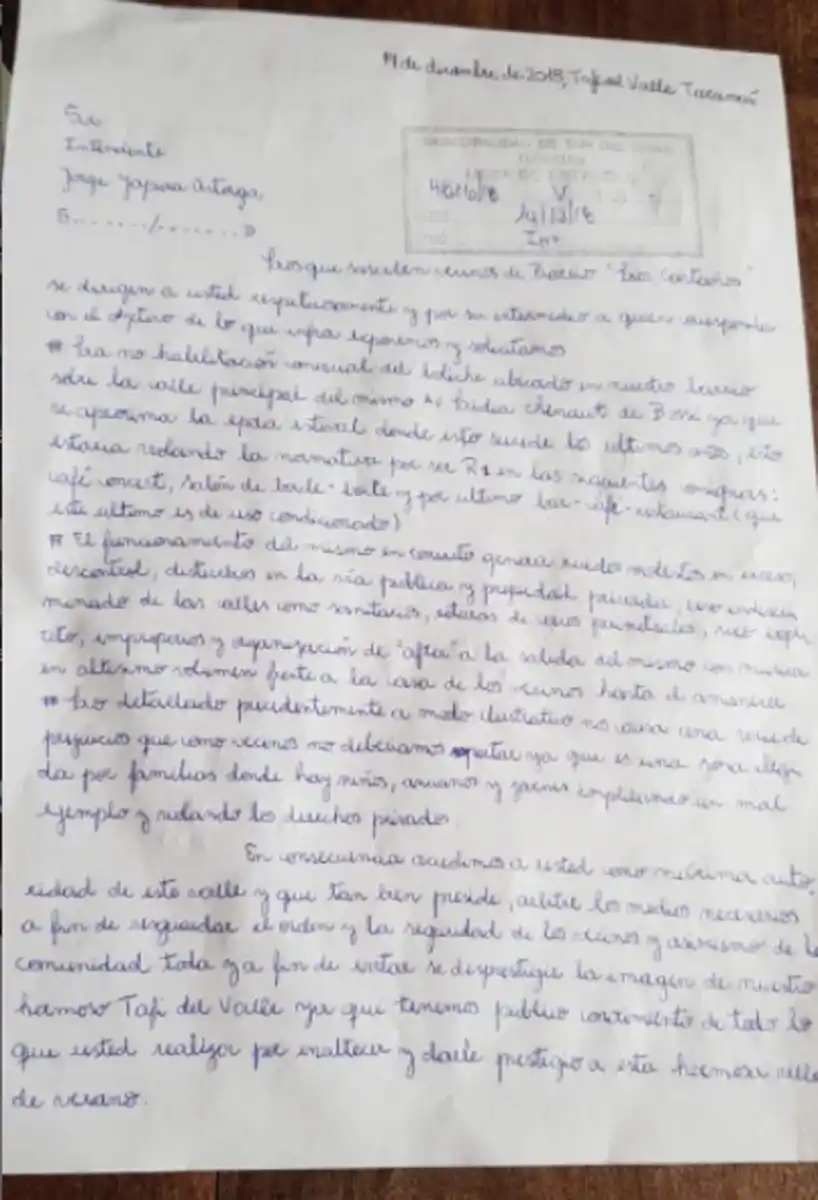 de diciembre de 2018, Tafí del Valle Tucumán
Sr
Intendente
Jorge Yapura Astorga
S......./.......D
MUNICIPALIDAD DE TAFI DEL VALLE
14/12/18
Los que suscriben vecinos de Barrio "Los Castaños"
se dirigen a usted respetuosamente y por su intermedio a quien corresponda
con el objetivo de lo que infra exponemos y solicitamos
# La no habilitación comercial del boliche ubicado en nuestro barrio
sobre la calle principal del mismo Av Lidia Chenaut de Bossi ya que
se aproxima la época estival donde esto sucede los ultimos años, esto
estaria violando la normativa por ser R1 en las siguientes
café concert, salón de baile y por ultimo bar-café-restaurant (que
este ultimo es de uso condicionado)
# El funcionamiento del mismo en concreto genera ruidos molestos en exceso,
descontrol, destrucción en la vía publica y propiedad privada, uso
minado de las calles como sanitarios, sexo expli
cito, improperios y organización de "after" a la salida del mismo con musica
en altisimo volumen frente a la casa de los vecinos hasta el amanecer
# Lo detallado precedentemente a modo ilustrativo nos causa una serie de
perjuicios que como vecinos no deberiamos soportar ya que es una zona elegi
da por familias donde hay niños, ancianos y jovenes implicando un mal
ejemplo y violando los derechos privados
En consecuencia acudimos a usted como máxima auto
ridad de este valle y que tan bien preside, arbitre los medios necesarios
a fin de resguardar el orden y la seguridad de los vecinos y asimismo de la
comunidad toda y a fin de evitar se desprestigie la imagen de nuestro
hermoso Tafi del Valle ya que tenemos publico conocimiento de todo lo
que usted realiza por enaltecer y darle prestigio a esta hermosa villa
de verano.